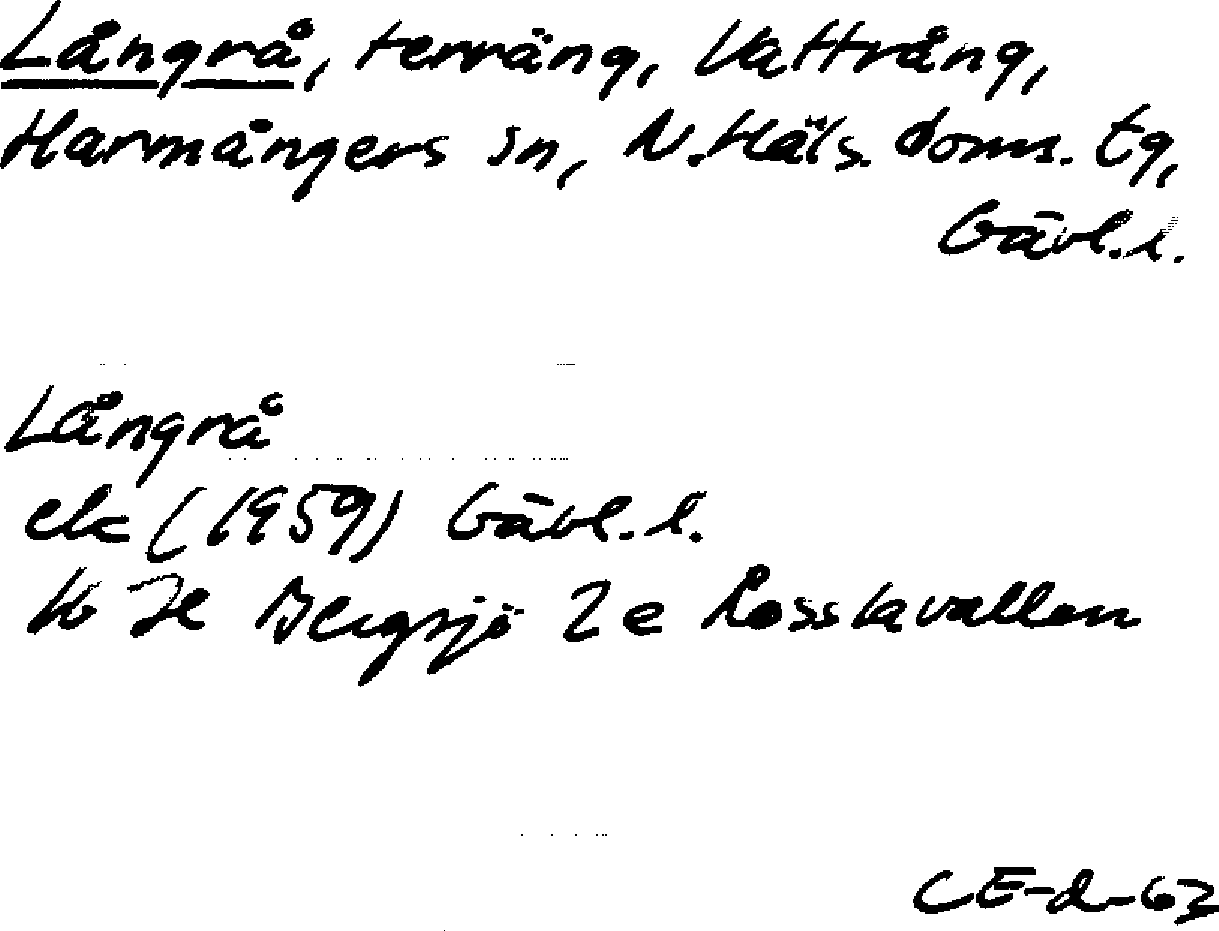 Långrå, terräng, Vattrång,
Harmångers sn, N. Häls. doms. tg,
Gävl. l.
Långrå
ek (1959) Gävl. l.
16 H Bergsjö 2e Åosslavallen
CE-d-63